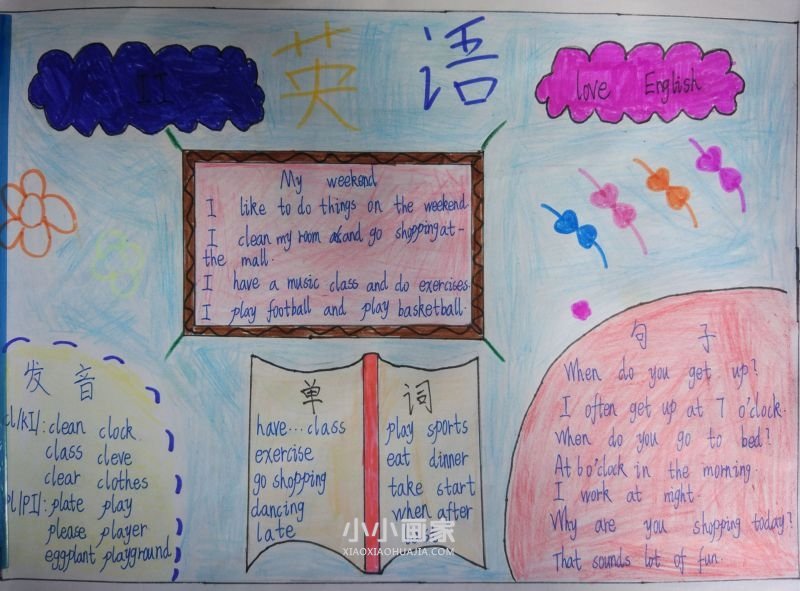 英语
II
love English
My weekend
I like to do things on the weekend
I clean my room and go shopping at-
the mall.
I have a music class and do exercises.
I play football and play basketball.
发音
cl/kI/: clean clock
class cleve
clear clothes
pl/pI/: plate play
please player
eggplant playground
单词
have...class
exercise
go shopping
dancing
late
play sports
eat dinner
take start
when after
句子
When do you get up?
I often get up at 7 o'clock.
When do you go to bed?
At 6 o'clock in the morning.
I work at night.
Why are you shopping today?
That sounds lot of fun.
小小画家
XIAOXIAOHUAJIA.COM